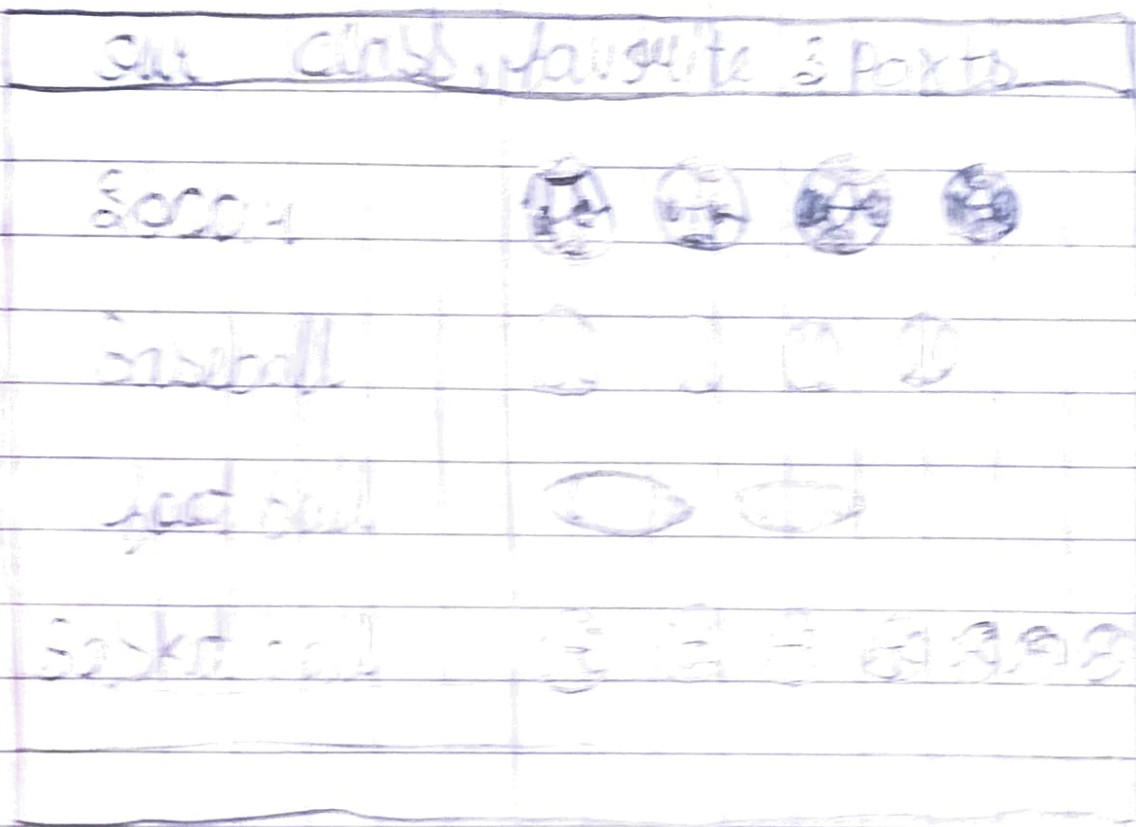 Our Class, favourite Sports
Soccer
Baseball
Foot ball
Basket ball